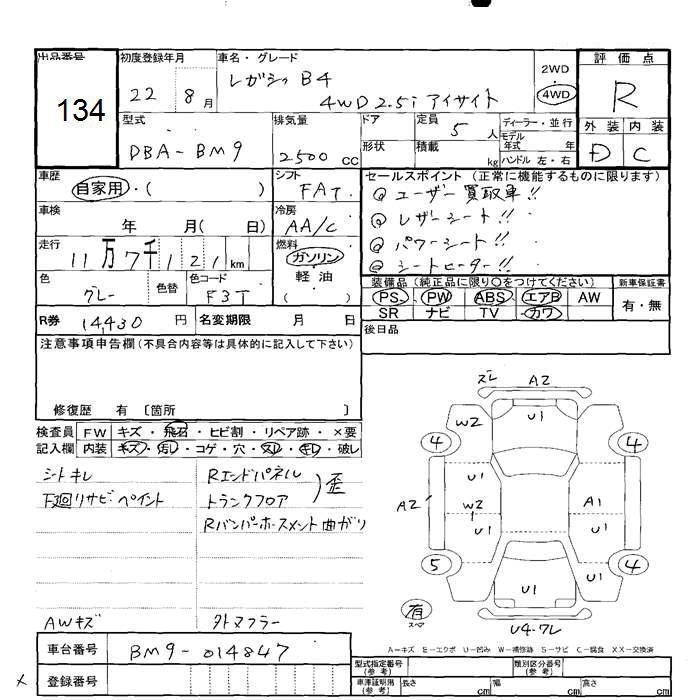 出品番号
134
初度登録年月
22年 8月
車名・グレード
レガシィ B4
4WD 2.5i アイサイト
2WD
4WD
評価点
R
外装 内装
D C
型式
DBA-BM9
排気量
2500 CC
ドア
形状
定員 5 人
積載 kg
ディーラー・並行
モデル年式 年
ハンドル 左・右
車歴
自家用・( )
シフト
FAT
セールスポイント (正常に機能するものに限ります)
◎ ユーザー買取車!!
◎ レザーシート!!
◎ パワーシート!!
◎ シートヒーター!!
車検
年 月( 日)
冷房
AA/C
走行
11万7千121km
燃料
ガソリン
軽油
( )
色
グレー
色替
色コード
F3T
装備品 (純正品に限り○をつけてください)
PS PW ABS エアB AW
SR ナビ TV カワ
新車保証書
有・無
R券 14,430 円
名変期限 月 日
後日品
注意事項申告欄(不具合内容等は具体的に記入して下さい)
修復歴 有 〔箇所 〕
検査員記入欄
FW キズ・飛石・ヒビ割・リペア跡・×要
内装 キズ・汚レ・コゲ・穴・スレ・キレ・破レ
シートキレ
下廻リサビ・ペイント
AWキズ
Rエンドパネル
トランクフロア
)歪
Rバンパーホースメント曲がり
外マフラー
ズレ A2
W2 U1
4 4
U1
A2 W2 A1
U1 U1
5 4
U1 U1
有
スペア
U4・ワレ
A=キズ E=エクボ U=凹み W=補修跡 S=サビ C=腐食 XX=交換済
車台番号 BM9-014847
登録番号
型式指定番号(参考)
類別区分番号(参考)
車庫証明用(参考)
長さ cm 幅 cm 高さ cm